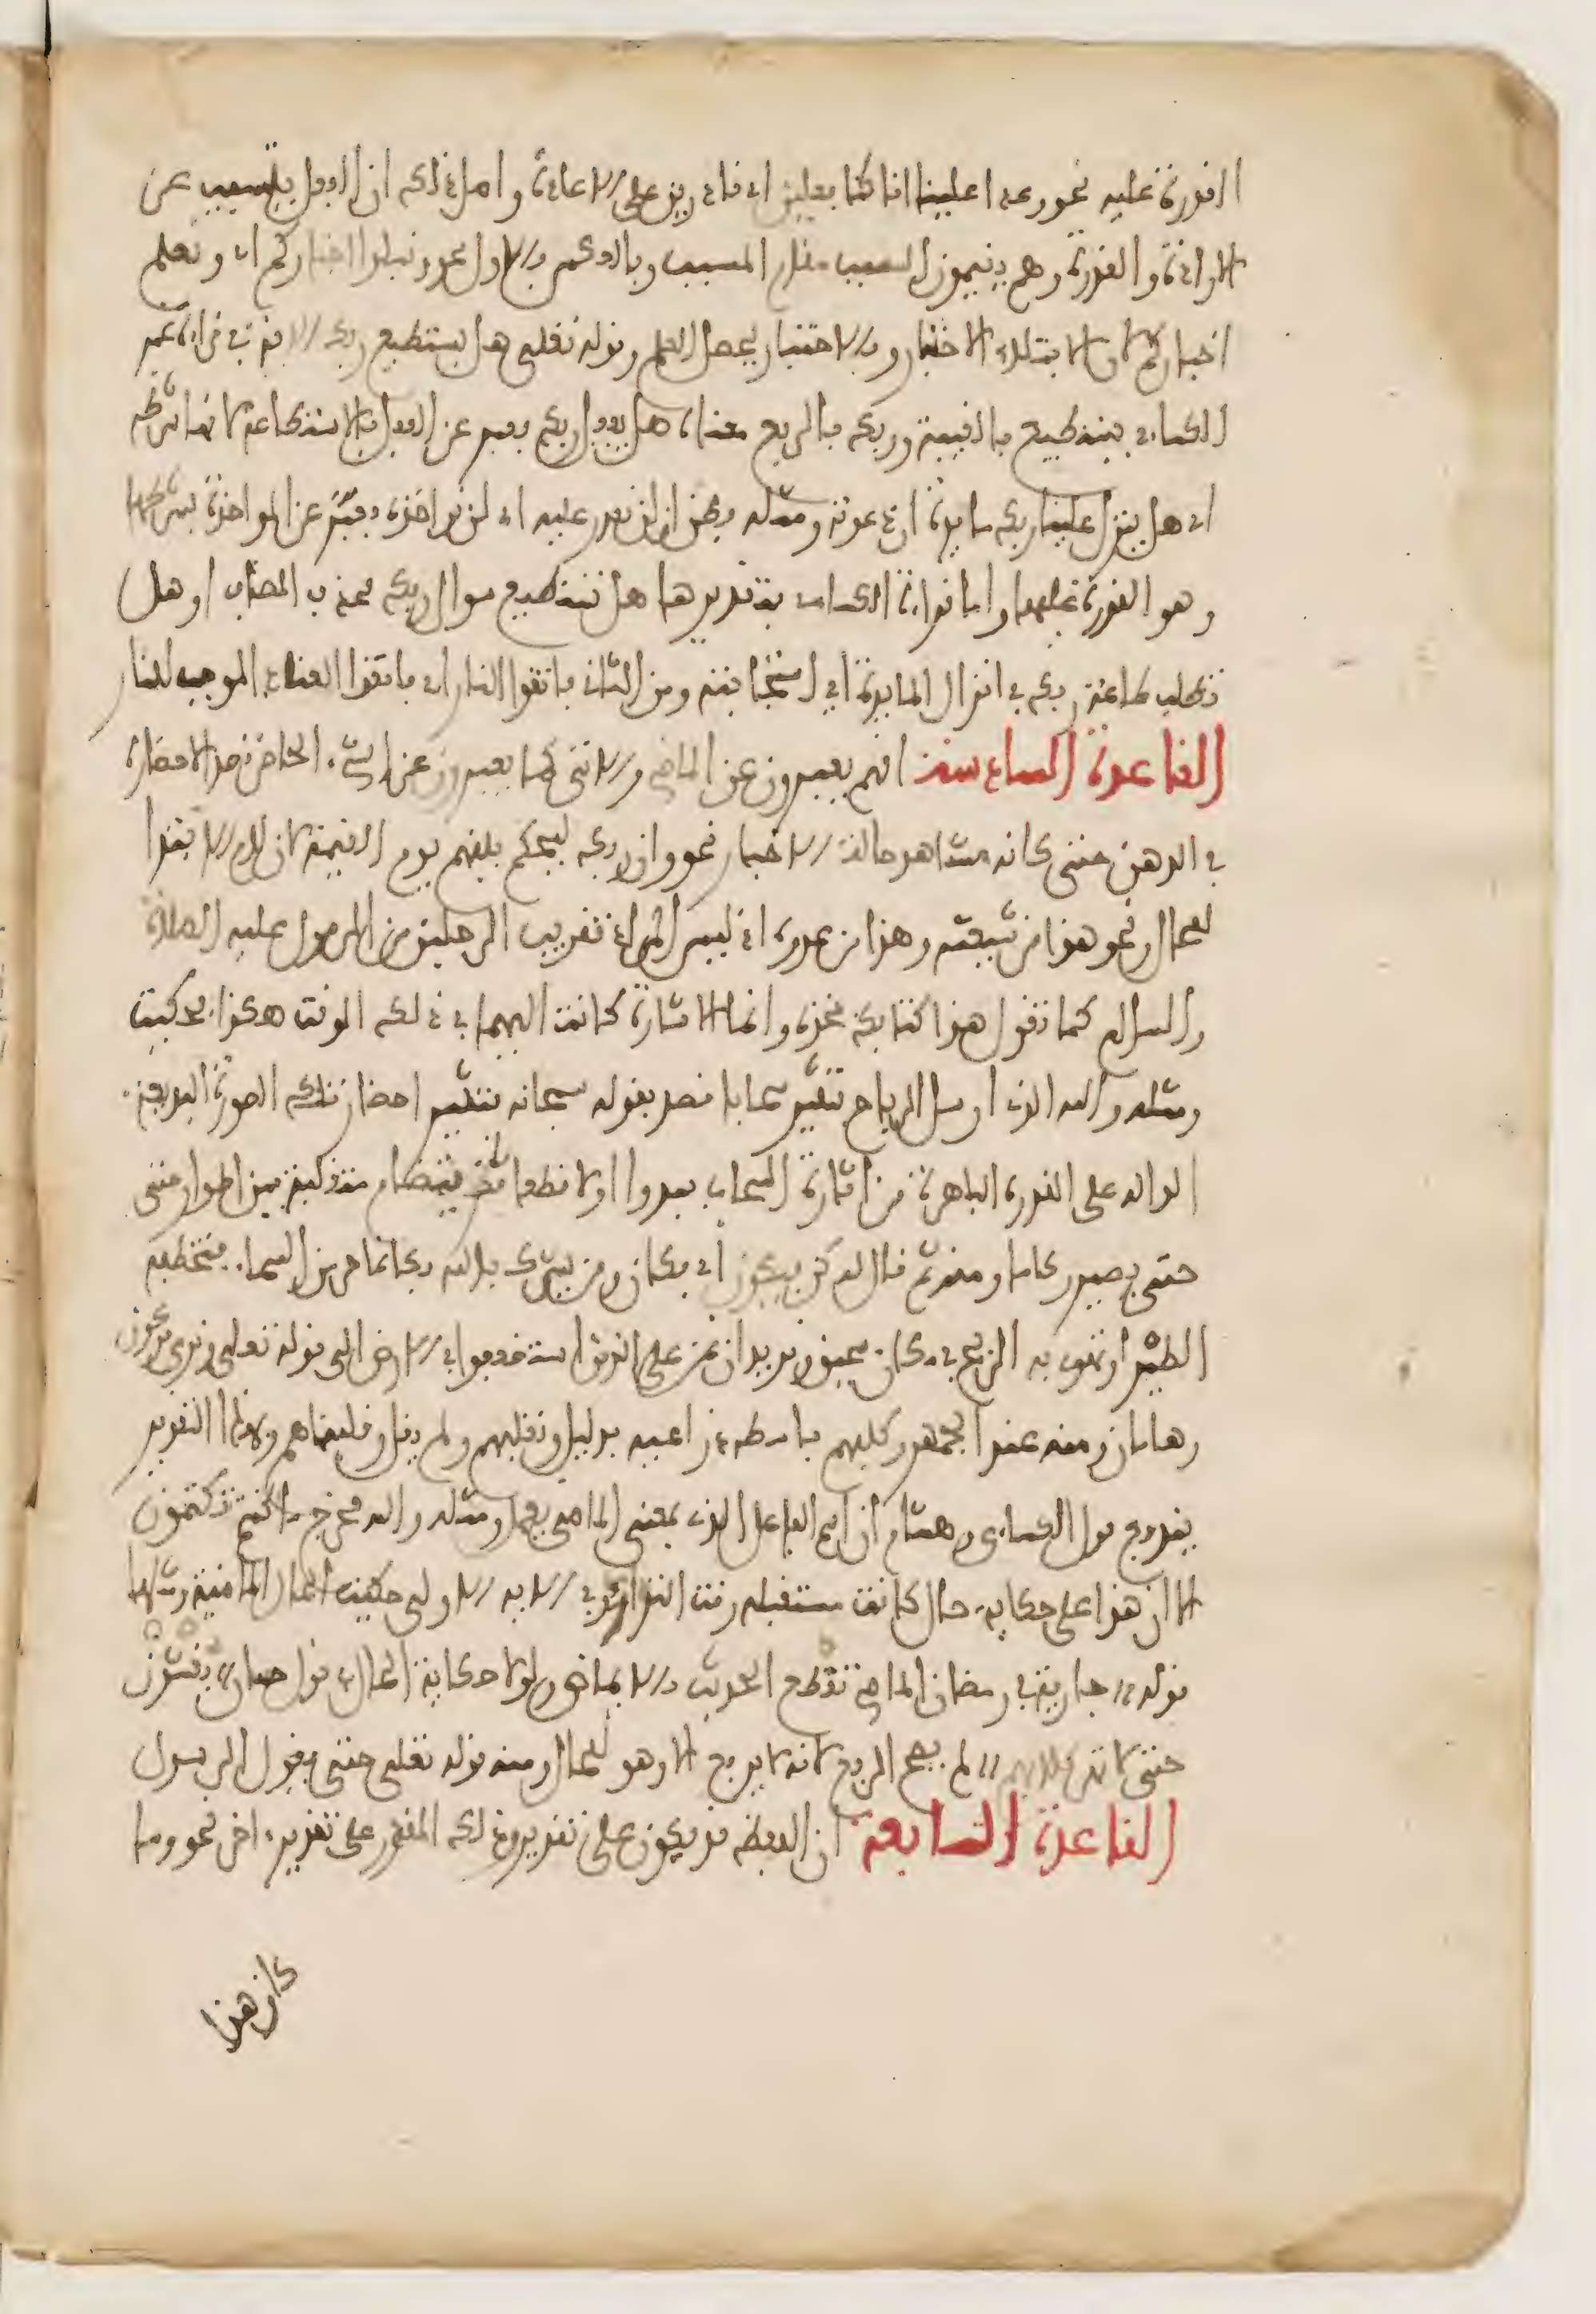 القدرة عليه نحو وعدا علينا انا كنا فعلين اي قادرين على الاعادة واصل ذلك ان الفعل يتسبب عن
الارادة والقدرة وهم يقيمون السبب مقام المسبب وبالعكس فالاول نحو ونبلوا اخباركم اي ونعلم
اخباركم لان الابتلاء الاختبار وبالاختبار يحصل العلم وقوله تعلى هل يستطيع ربك الاية في قراءة غير
الكساءي يستطيع بالغيبة وربك بالرفع معناه هل يفعل ربك فعبر عن الفعل بالاستطاعة لانها شرطه
اي هل ينزل علينا ربك مايدة ان دعوته ومثله فظن ان لن نقدر عليه اي لن نواخذه فعبر عن المواخذة بشرطها
وهو القدرة عليها واما قراءة الكساءي فتقديرها هل تستطيع سوال ربك فحذف المضاف او هل
تطلب طاعة ربك في انزال المايدة اي استجابته ومن الثاني فاتقوا النار اي فاتقوا العناد الموجب للنار
القاعدة السادسة انهم يعبرون عن الماضي والاتي كما يعبرون عن الشيء الحاضر قصدا لاحضاره
في الذهن حتى كانه مشاهد حالة الاخبار نحو وان ربك ليحكم بينهم يوم القيمة لان لام الابتدا
للحال ونحو هذا من شيعته وهذا من عدوه اذ ليس المراد تقريب الرجلين من الرسول عليه الصلاة
والسلام كما تقول هذا كتابك فخذه وانما الاشارة كانت اليهما في ذلك الوقت هكذا فحكيت
ومثله والله الذي ارسل الرياح فتثير سحابا قصد بقوله سبحانه فتثير احضار تلك الصورة البديعة
الدالة على القدرة الباهرة من اثارة السحاب يبدوا اولا قطعا ثم يتضام متقلبة بين اطوار حتى
حتى يصير ركاما ومنه ثم قال له كن فيكون اي فكان ومن يشرك بالله فكانما خر من السماء فتخطفه
الطير او تهوي به الريح في مكان سحيق ونريد ان نمن على الذين استضعفوا في الارض الى قوله تعلى ونري فرعون
وهامان ومنه عند الجمهور وكلبهم باسط ذراعيه بدليل ونقلبهم ولم يقل وقلبناهم وبهذا التقرير
يندفع قول الكساءي وهشام ان اسم الفاعل الذي بمعنى الماضي يعمل ومثله والله مخرج ما كنتم تكتمون
الا ان هذا على حكاية حال كانت مستقبلة وقت التدارؤ وفي الاية الاولى حكيت الحال الماضية ومثلها
قوله // جارية في رمضان الماضي تقطع الحديث بالايماض // ولولا حكاية الحال في قول حسان // يغشون
حتى لا تهر كلابهم // لم يصح الرفع لانه لا يرفع الا وهو للحال ومنه قوله تعلى حتى يقول الرسول
القاعدة السابعة ان اللفظ قد يكون على تقدير وذلك المقدر على تقدير اخر نحو وما
كان هذا